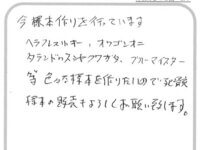 今標本作りを行っています
ヘラクレスルリキー、オウゴンオニ
タランドゥスツヤクワガタ、ブルーマイスター
等 色々な標本を作りたいので死骸
標本の販売もよろしくお願い致します。